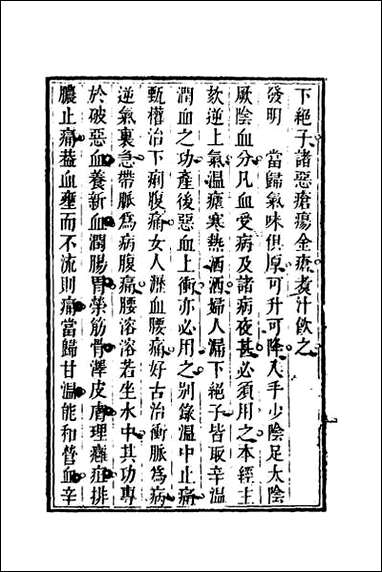 下絕子諸惡瘡瘍金瘡煮汁飲之
發明　當歸氣味俱厚可升可降入手少陰足太陰
厥陰血分凡血受病及諸病夜甚必須用之本經主
欬逆上氣溫瘧寒熱洒洒婦人漏下絕子皆取辛溫
潤血之功產後惡血上衝亦必用之別錄溫中止痛
甄權治下痢腹痛女人瀝血腰痛好古治衝脈為病
逆氣裏急帶脈為病腹痛腰溶溶若坐水中其功專
於破惡血養新血潤腸胃榮筋骨澤皮膚理癰疽排
膿止痛葢血壅而不流則痛當歸甘溫能和營血辛